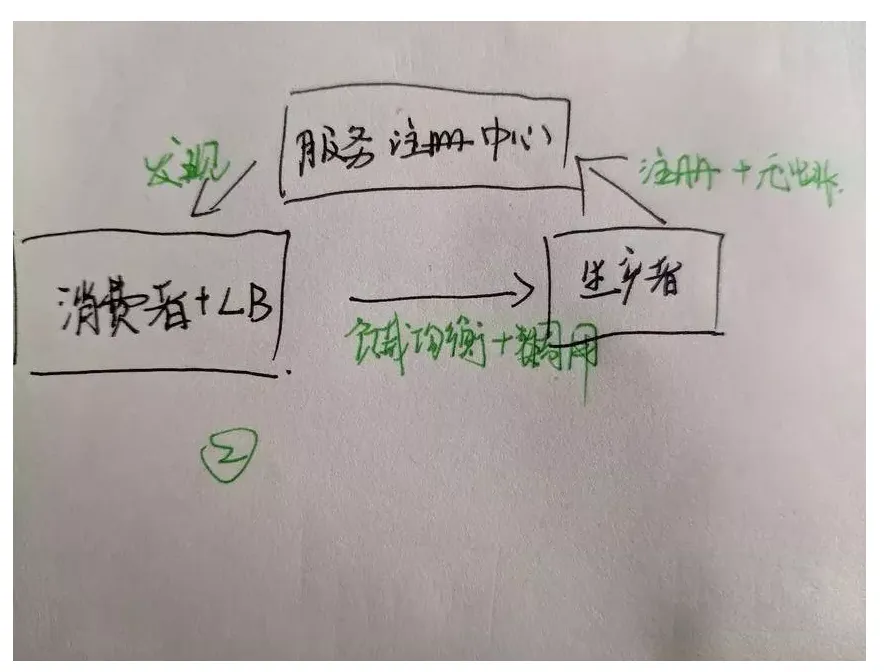 服务注册中心
发现
注册+元
消费者+LB
生产者
负载均衡+调用
②